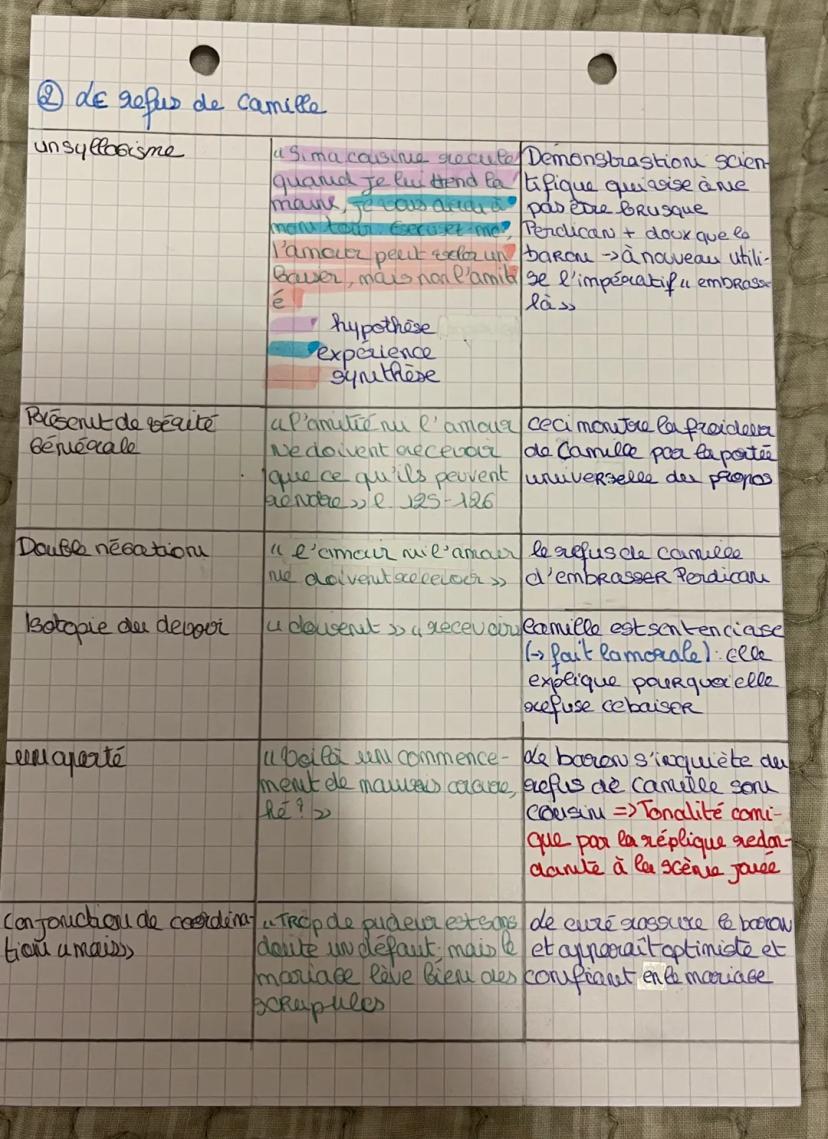 ② Le refus de Camille
un syllogisme
« Si ma cousine recule
quand je lui ttend la
main, je vous dirai à
mon tour Excusez-moi,
l'amour peut voler un
baiser, mais non l'amiti
é
hypothèse
expérience
synthèse
Démonstrastion scien-
tifique qui vise à ne
pas être brusque
Perdican + doux que le
baron -> à nouveau utili-
se l'impératif « embrasse
là »
Présent de vérité
générale
« l'amitié ni l'amour
ne doivent recevoir
que ce qu'ils peuvent
rendre » l 125-126
ceci montre la froideur
de Camille par la portée
universelle des propos
Double négation
« l'amour ni l'amour
ne doivent recevoir »
le refus de camille
d'embrasser Perdican
Isotopie du devoir
« doivent » « recevoir
Camille est sentenciase
(-> fait la morale) : elle
explique pourquoi elle
refuse ce baiser
un aparté
« Voilà un commence-
ment de mauvais augure,
hé ? »
Le baron s'inquiète du
refus de Camille son
cousin => Tonalité comi-
que par la réplique redon-
dante à la scène jouée
Conjonction de coordina-
tion « mais »
« Trop de pudeur est sans
doute un défaut, mais le
mariage lève bien des
scrupules
Le curé rassure le baron
et apparaît optimiste et
confiant en le mariage